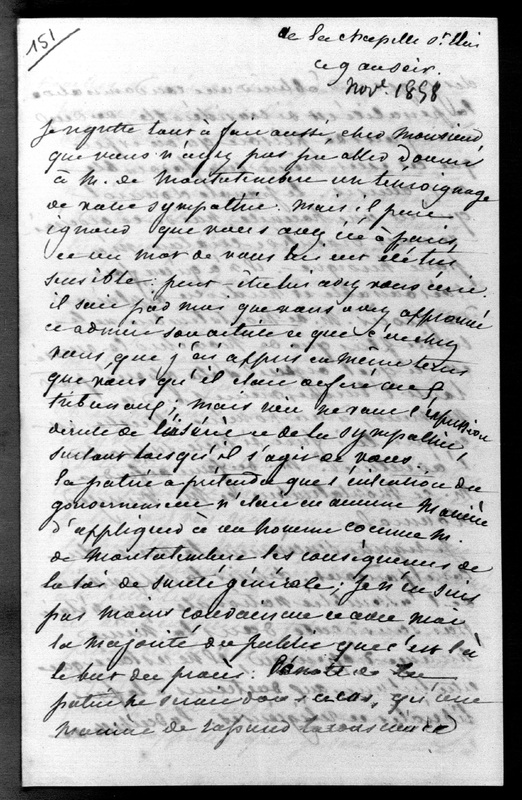 151
de la chapelle St Eloi
ce 9 au soir.
Nov. 1858
Je regrette tout à fait aussi, cher Monsieur
que vous n'ayez pas pu aller donner
à M. de Montalembert un témoignage
de votre sympathie. Mais il peut
ignorer que vous avez été à Paris
et un mot de vous lui eut été très
sensible. peut-être lui avez vous écrit.
il sait par moi que vous avez approuvé
et admiré son article et que c'est chez
vous, que j'ai appris en même temps
que vous qu'il était déféré aux
tribunaux; mais rien ne vaut l'expression
directe de la sympathie,
surtout lorsqu'il s'agit de vous.
la patrie a prétendu que l'intention du
gouvernement n'était en aucune manière
d'appliquer à un homme comme M.
de Montalembert les conséquences de
la loi de sureté générale; Je n'en suis
pas moins convaincue et avec moi
la majorité du public que c'est là
le but du procès. de la
patrie ne serait dans ce cas, qu'une
manière de